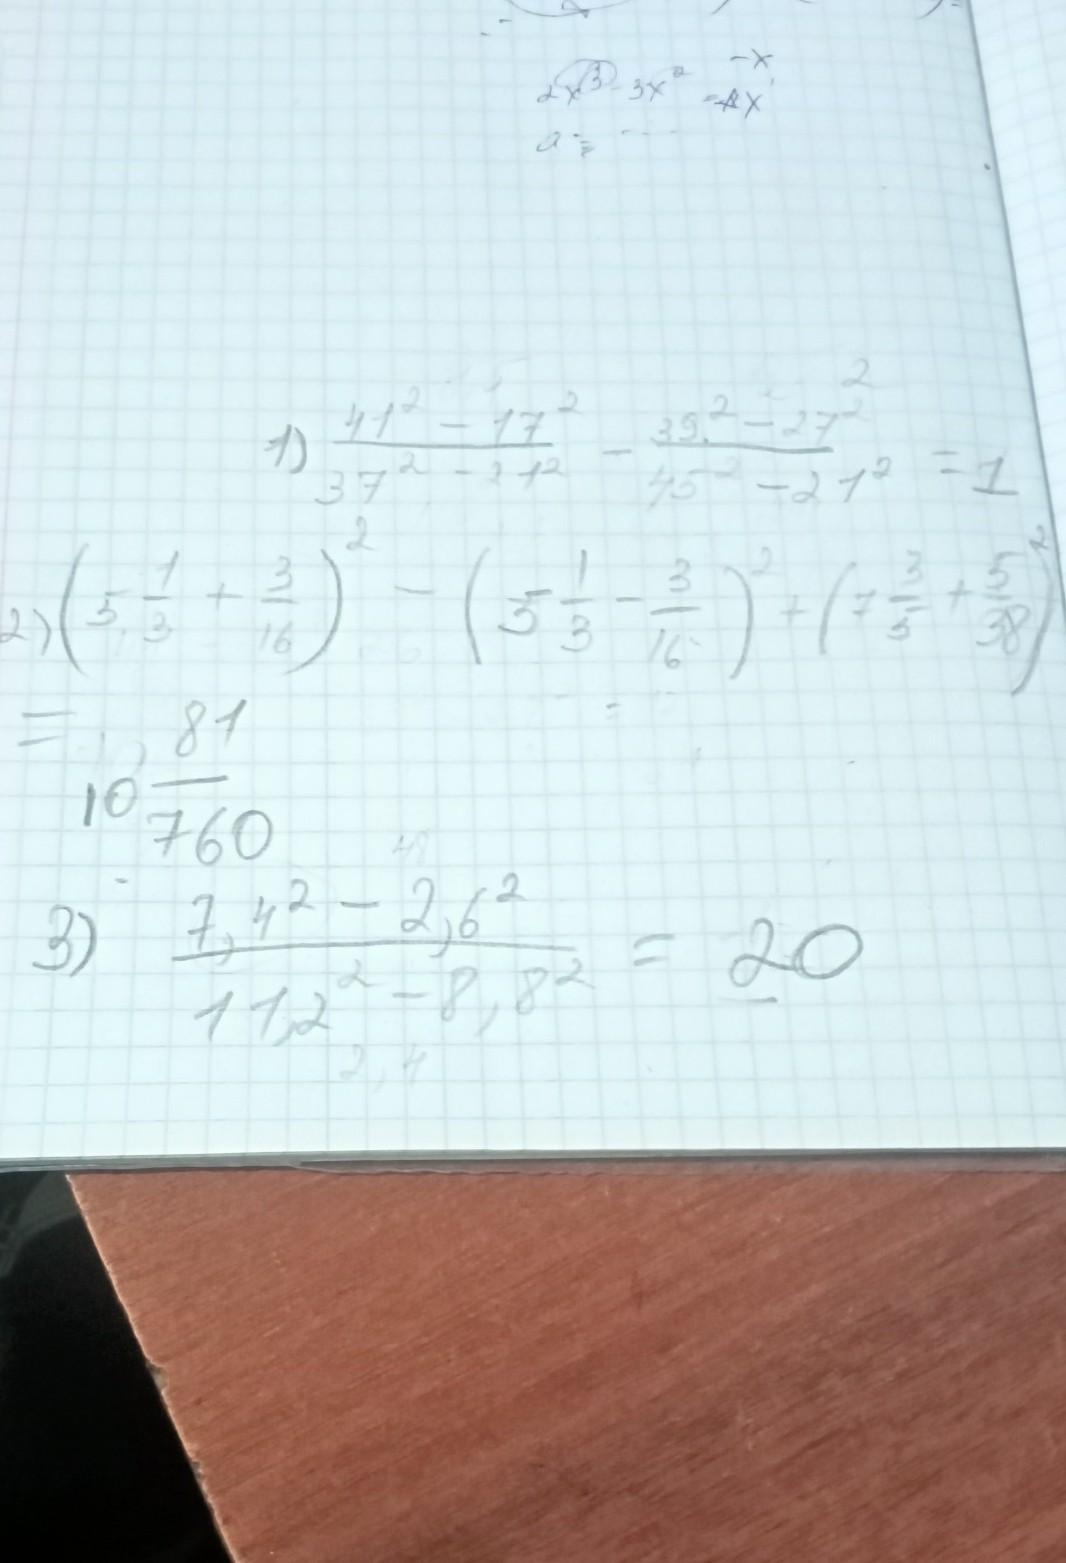 2x³ - 3x² = 4x
-x
a =
1) (41² - 17²)/(37² - 21²) - (39² - 27²)/(45² - 21²) = 1
2
2) (5 1/3 + 3/16)² - (5 1/3 - 3/16)² + (7 3/5 + 5/38)²
= 10 81/760
48
3) (7,4² - 2,6²)/(11,2² - 8,8²) = 20
2,4